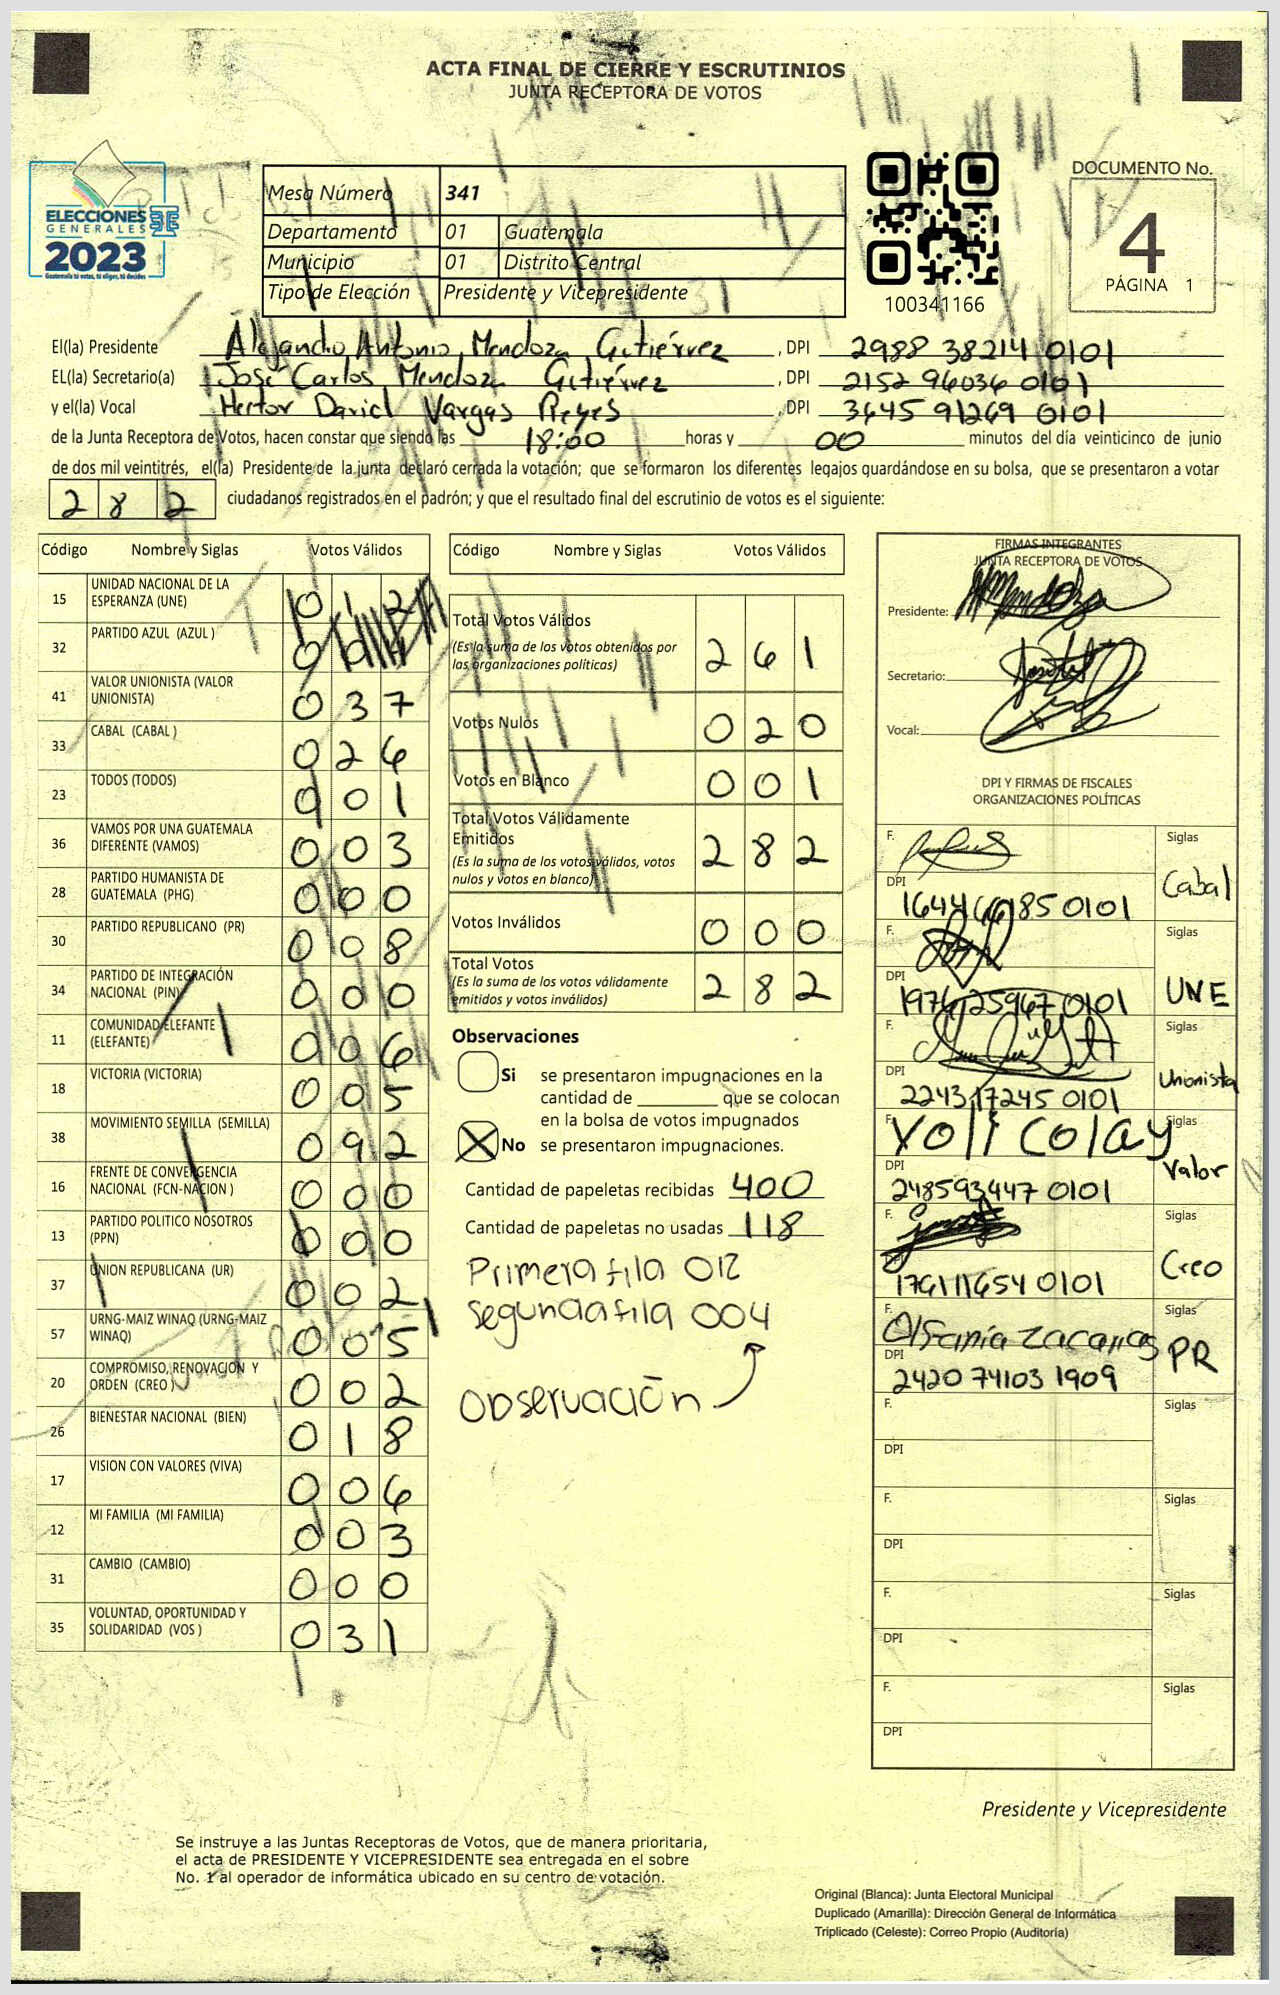 ACTA FINAL DE CIERRE Y ESCRUTINIOS
JUNTA RECEPTORA DE VOTOS
ELECCIONES
GENERALES
2023
Guatemala tú votas, tú eliges, tú decides
Mesa Número 341
Departamento 01 Guatemala
Municipio 01 Distrito Central
Tipo de Elección Presidente y Vicepresidente
100341166
DOCUMENTO No.
4
PÁGINA 1
El(la) Presidente Alejandro Antonio Mendoza Gutiérrez , DPI 2988 38214 0101
EL(la) Secretario(a) José Carlos Mendoza Gutiérrez , DPI 2152 96036 0101
y el(la) Vocal Hector David Vargas Reyes , DPI 3645 91269 0101
de la Junta Receptora de Votos, hacen constar que siendo las 18:00 horas y 00 minutos del día veinticinco de junio
de dos mil veintitrés, el(la) Presidente de la junta declaró cerrada la votación; que se formaron los diferentes legajos quardándose en su bolsa, que se presentaron a votar
282 ciudadanos registrados en el padrón; y que el resultado final del escrutinio de votos es el siguiente:
Código Nombre y Siglas Votos Válidos
15 UNIDAD NACIONAL DE LA
ESPERANZA (UNE) 0 1 2
32 PARTIDO AZUL (AZUL ) 0
41 VALOR UNIONISTA (VALOR
UNIONISTA) 0 3 7
33 CABAL (CABAL ) 0 2 6
23 TODOS (TODOS) 0 0 1
36 VAMOS POR UNA GUATEMALA
DIFERENTE (VAMOS) 0 0 3
28 PARTIDO HUMANISTA DE
GUATEMALA (PHG) 0 0 0
30 PARTIDO REPUBLICANO (PR) 0 0 8
34 PARTIDO DE INTEGRACIÓN
NACIONAL (PIN) 0 0 0
11 COMUNIDAD ELEFANTE
(ELEFANTE) 0 0 6
18 VICTORIA (VICTORIA) 0 0 5
38 MOVIMIENTO SEMILLA (SEMILLA) 0 9 2
16 FRENTE DE CONVERGENCIA
NACIONAL (FCN-NACION ) 0 0 0
13 PARTIDO POLITICO NOSOTROS
(PPN) 0 0 0
37 UNION REPUBLICANA (UR) 0 0 2
57 URNG-MAIZ WINAQ (URNG-MAIZ
WINAQ) 0 0 5
20 COMPROMISO, RENOVACION Y
ORDEN (CREO ) 0 0 2
26 BIENESTAR NACIONAL (BIEN) 0 1 8
17 VISION CON VALORES (VIVA) 0 0 6
12 MI FAMILIA (MI FAMILIA) 0 0 3
31 CAMBIO (CAMBIO) 0 0 0
35 VOLUNTAD, OPORTUNIDAD Y
SOLIDARIDAD (VOS ) 0 3 1
Código Nombre y Siglas Votos Válidos
Total Votos Válidos
(Es la suma de los votos obtenidos por
las organizaciones políticas) 2 6 1
Votos Nulos 0 2 0
Votos en Blanco 0 0 1
Total Votos Válidamente
Emitidos
(Es la suma de los votos válidos, votos
nulos y votos en blanco) 2 8 2
Votos Inválidos 0 0 0
Total Votos
(Es la suma de los votos válidamente
emitidos y votos inválidos) 2 8 2
Observaciones
Si se presentaron impugnaciones en la
cantidad de ________ que se colocan
en la bolsa de votos impugnados
X No se presentaron impugnaciones.
Cantidad de papeletas recibidas 400
Cantidad de papeletas no usadas 118
Primera fila 012
segunda fila 004
Observación
FIRMAS INTEGRANTES
JUNTA RECEPTORA DE VOTOS
Presidente: Mendoza
Secretario:
Vocal:
DPI Y FIRMAS DE FISCALES
ORGANIZACIONES POLÍTICAS
F. Siglas
DPI 0101 Cabal
F. Siglas
DPI 0101 UNE
F. Siglas
DPI 2243 17245 0101 Unionista
F. Siglas
DPI 248593447 0101 Valor
F. Siglas
0101 Creo
F. Siglas
DPI 2420 74103 1909 PR
F. Siglas
DPI
F. Siglas
DPI
F. Siglas
DPI
F. Siglas
DPI
Presidente y Vicepresidente
Se instruye a las Juntas Receptoras de Votos, que de manera prioritaria,
el acta de PRESIDENTE Y VICEPRESIDENTE sea entregada en el sobre
No. 1 al operador de informática ubicado en su centro de votación.
Original (Blanca): Junta Electoral Municipal
Duplicado (Amarilla): Dirección General de Informática
Triplicado (Celeste): Correo Propio (Auditoría)